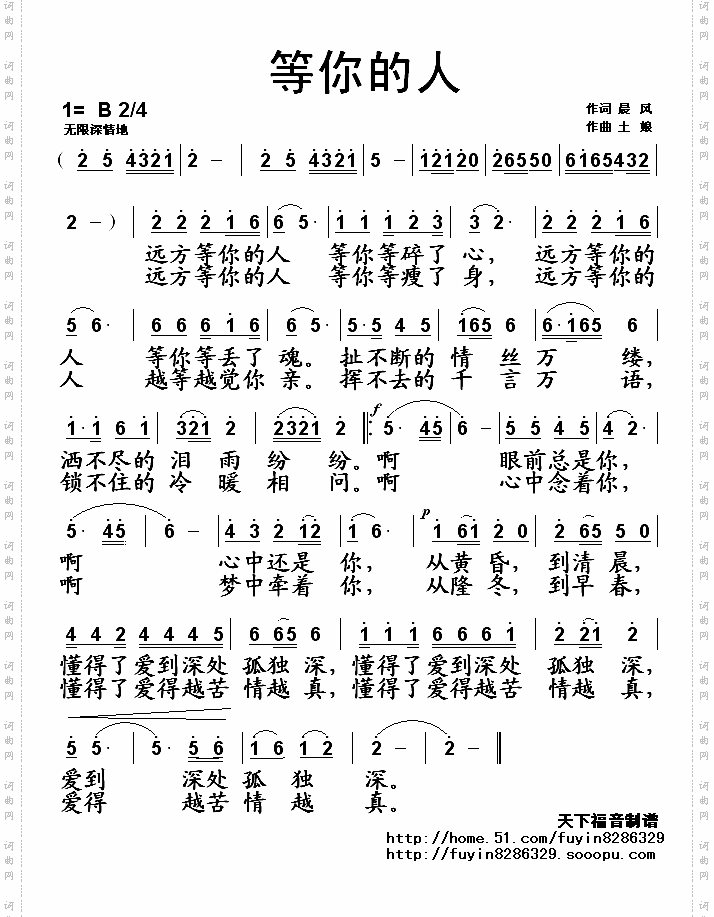 等你的人
1= B 2/4
作词 晨 风
无限深情地
作曲 土 娘
( 2 5 4321 | 2 - | 2 5 4321 | 5 - | 12120 | 26550 | 6165432 |
2 - ) | 2 2 2 1 6 | 6 5· | 1 1 1 2 3 | 3 2· | 2 2 2 1 6 |
远方等你的人 等你等碎了心, 远方等你的
远方等你的人 等你等瘦了身, 远方等你的
5 6· | 6 6 6 1 6 | 6 5· | 5·5 4 5 | 165 6 | 6·165 6 |
人 等你等丢了魂。扯不断的情丝万缕,
人 越等越觉你亲。挥不去的千言万语,
1·1 6 1 | 321 2 | 2321 2 |: f 5· 45 | 6 - | 5 5 4 5 | 4 2· |
洒不尽的泪雨纷纷。啊 眼前总是你,
锁不住的冷暖相问。啊 心中念着你,
5· 45 | 6 - | 4 3 2 12 | 1 6· | p 1 61 2 0 | 2 65 5 0 |
啊 心中还是你, 从黄昏, 到清晨,
啊 梦中牵着你, 从隆冬, 到早春,
4 4 2 4 4 4 5 | 6 65 6 | 1 1 1 6 6 6 1 | 2 21 2 |
懂得了爱到深处孤独深,懂得了爱到深处孤独深,
懂得了爱得越苦情越真,懂得了爱得越苦情越真,
5 5· | 5· 5 6 | 1 6 1 2 | 2 - | 2 - ||
爱到 深处孤独 深。
爱得 越苦情越 真。
天下福音制谱
http://home.51.com/fuyin8286329
http://fuyin8286329.sooopu.com
词曲网